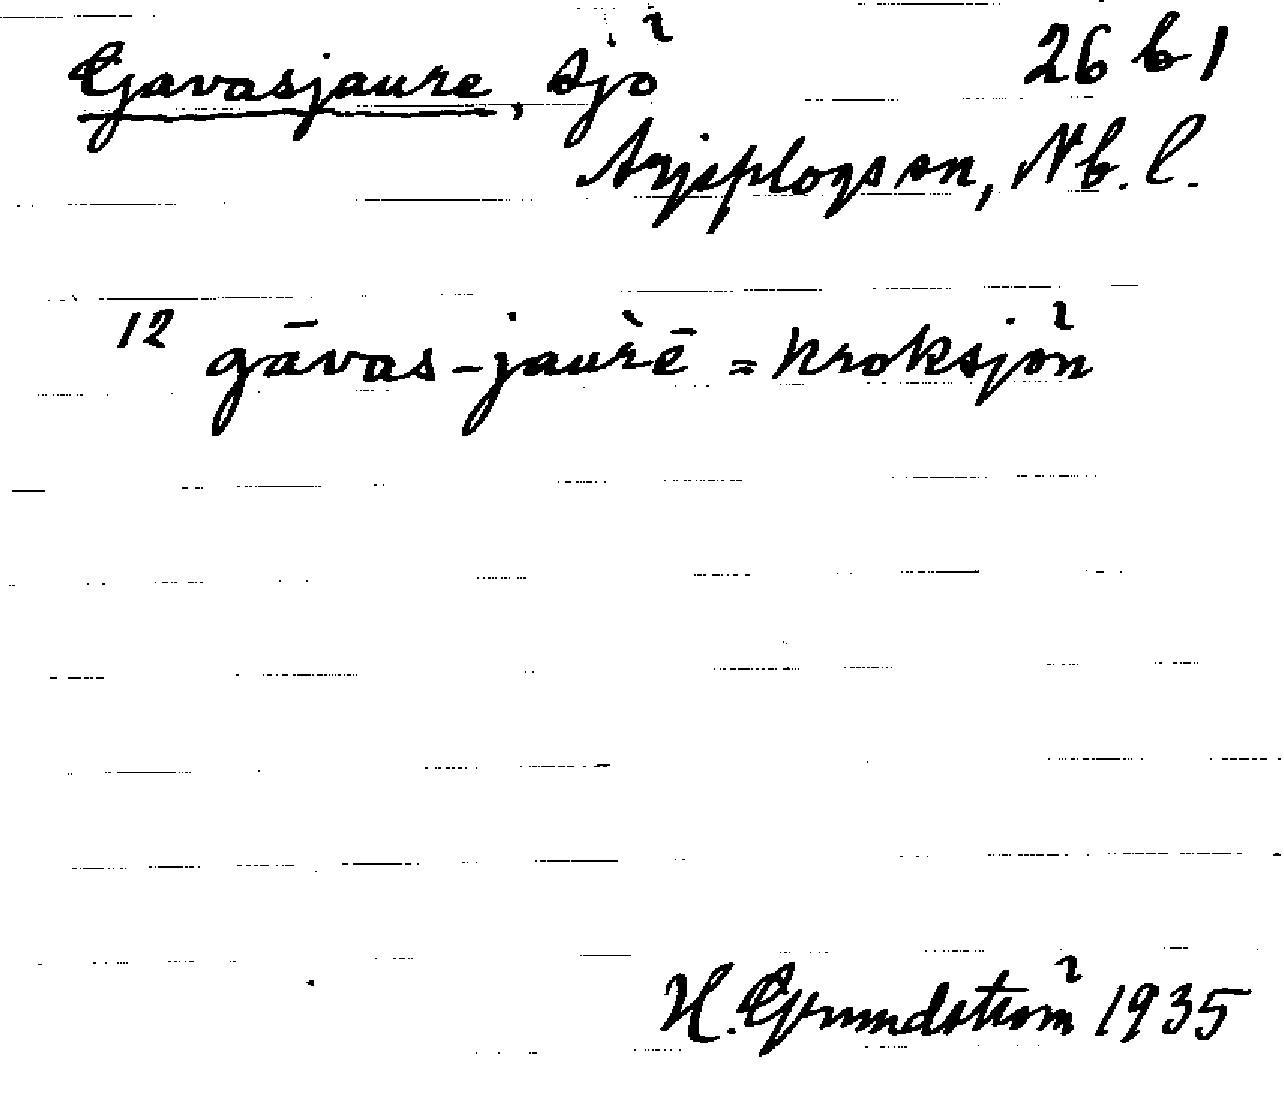 Gavasjaure, sjö 26 b 1
Arjeplogs sn, Nb. l.
12 gāvas-jaùrē = Kroksjön
H. Grundström 1935